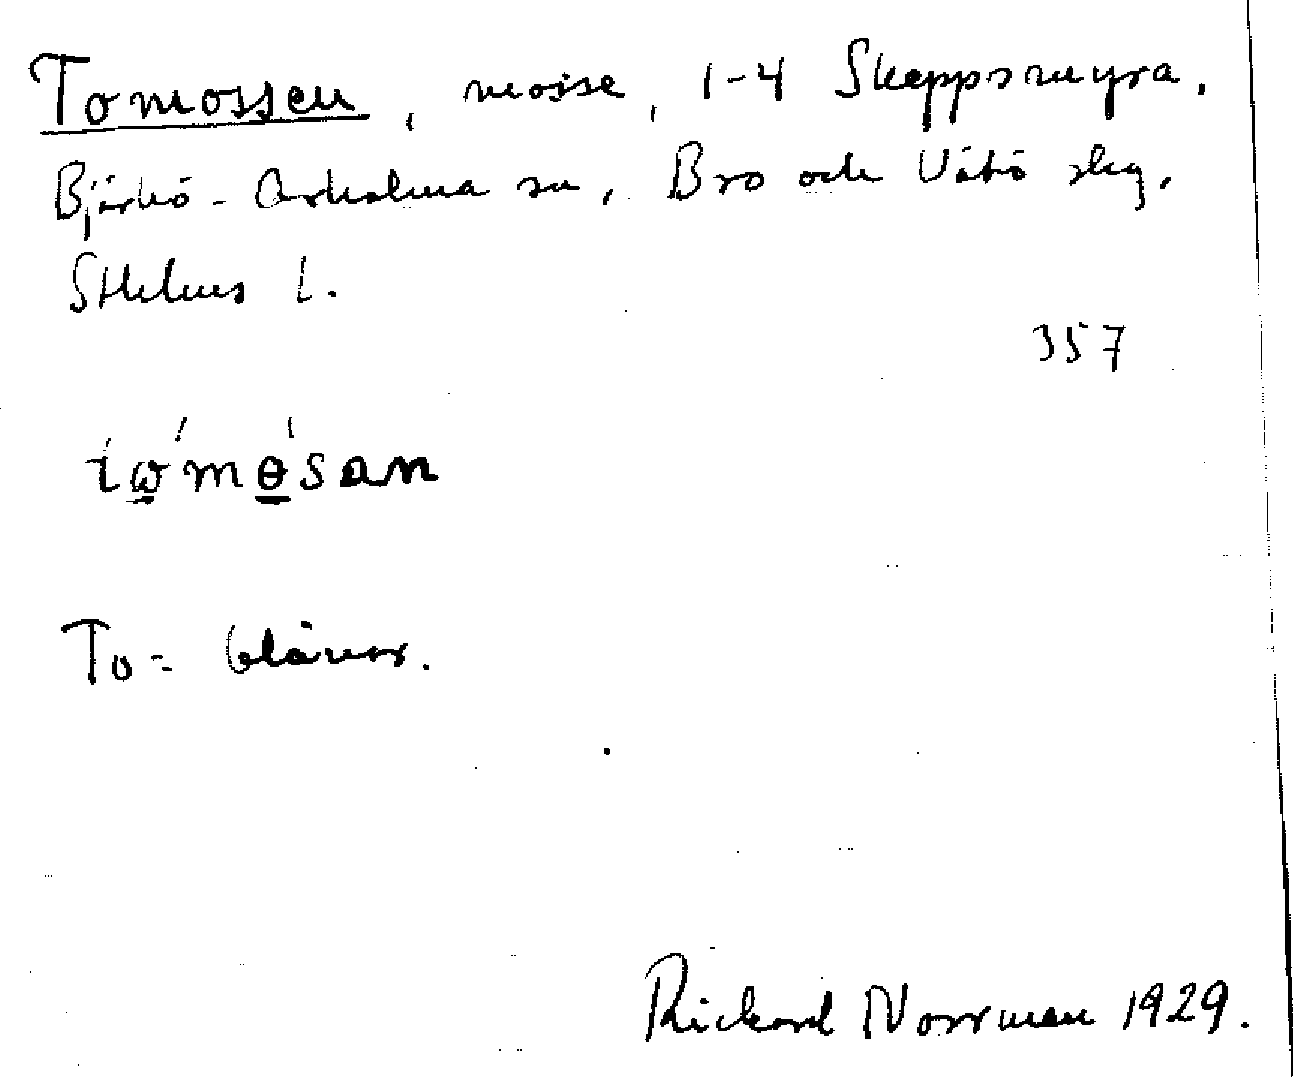 Tomossen, mosse, 1-4 Skeppsmyra,
Björkö-Arholma sn, Bro och Vätö skg,
Sthlms l.
357
tώ̱mɵ̱̀san
To = blånor.
Rickard Norrman 1929.